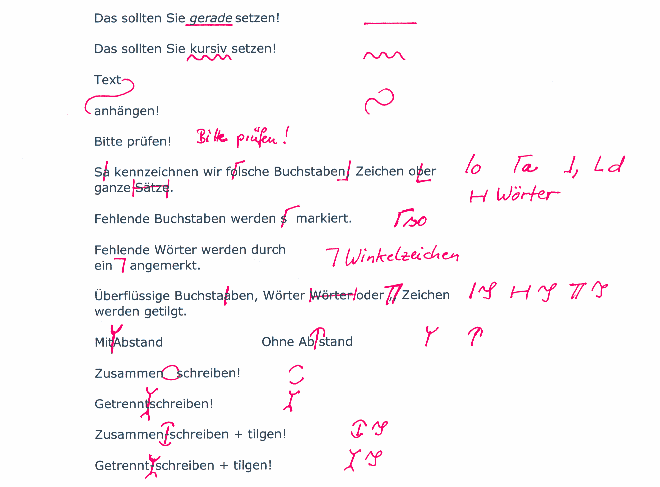 Das sollten Sie gerade setzen!
Das sollten Sie kursiv setzen!
Text
anhängen!
Bitte prüfen! Bitte prüfen!
Sa kennzeichnen wir folsche Buchstaben, Zeichen ober lo Γa ⅃, Ld
ganze Sätze. H Wörter
Fehlende Buchstaben werden s markiert. Γso
Fehlende Wörter werden durch
ein ⅂ angemerkt. ⅂ Winkelzeichen
Überflüssige Buchstaaben, Wörter Wörter oder ,, Zeichen
werden getilgt.
MitAbstand Ohne Ab stand
Zusammen schreiben!
Getrenntschreiben!
Zusammen/schreiben + tilgen!
Getrennt/schreiben + tilgen!